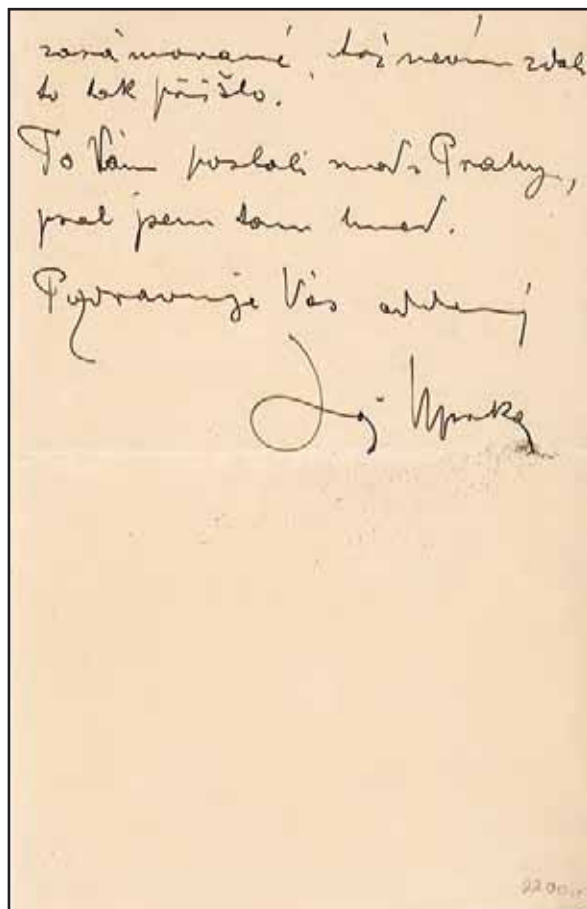 zarámované, též nevím zdali
to tak přišlo.
To Vám poslali snad z Prahy,
psal jsem tam hned.
Pozdravuje Vás oddaný
Joža Uprka
2200,-